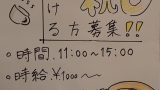 け
る方募集!!
•時間.11:00〜15:00
•時給¥1000〜